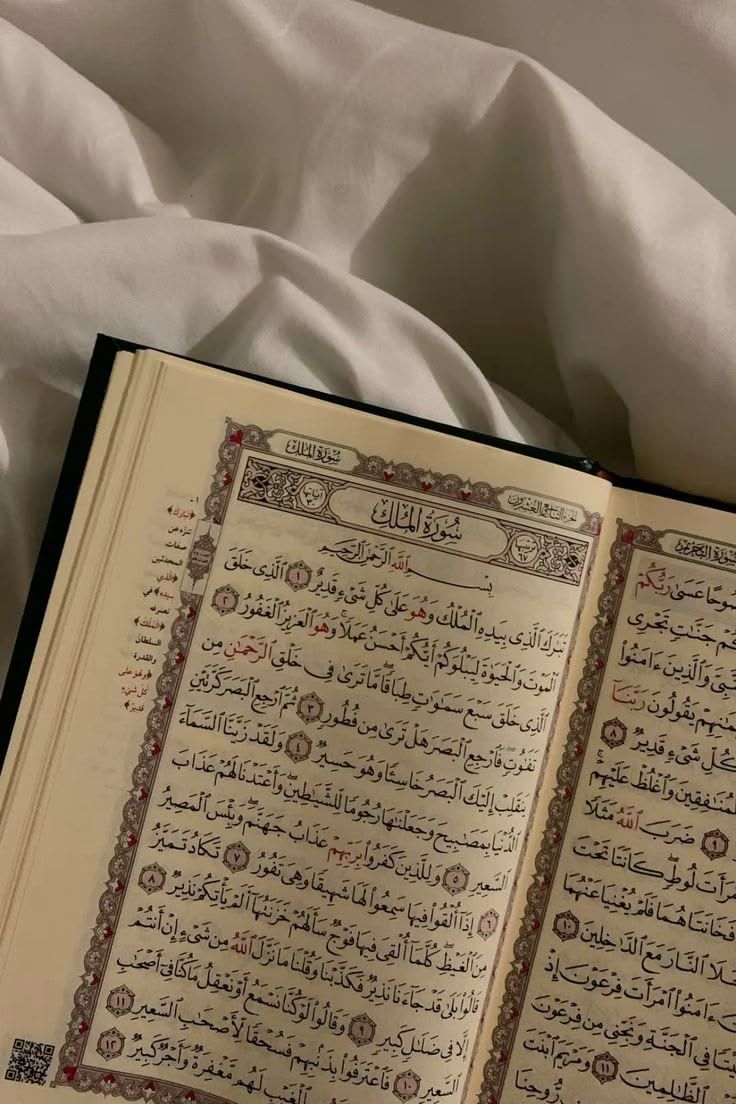 سُورَةُ التَّحْرِيمِ
صُوحًا عَسَىٰ رَبُّكُمْ
كُمْ جَنَّٰتٍ تَجْرِى
ٱلنَّبِىَّ وَٱلَّذِينَ ءَامَنُوا۟
مَٰنِهِمْ يَقُولُونَ رَبَّنَآ
كُلِّ شَىْءٍ قَدِيرٌ ٨
ٱلْمُنَٰفِقِينَ وَٱغْلُظْ عَلَيْهِمْ
٩ ضَرَبَ ٱللَّهُ مَثَلًا
ٱمْرَأَتَ لُوطٍ كَانَتَا تَحْتَ
فَخَانَتَاهُمَا فَلَمْ يُغْنِيَا عَنْهُمَا
خُلَا ٱلنَّارَ مَعَ ٱلدَّٰخِلِينَ ١٠
ءَامَنُوا۟ ٱمْرَأَتَ فِرْعَوْنَ إِذْ
يْتًا فِى ٱلْجَنَّةِ وَنَجِّنِى مِن فِرْعَوْنَ
ٱلظَّٰلِمِينَ ١١ وَمَرْيَمَ ٱبْنَتَ
رُّوحِنَا
الجزء التاسع والعشرون سُورَةُ المُلْكِ
سُورَةُ المُلْكِ
بِسْمِ ٱللَّهِ ٱلرَّحْمَٰنِ ٱلرَّحِيمِ
تَبَٰرَكَ ٱلَّذِى بِيَدِهِ ٱلْمُلْكُ وَهُوَ عَلَىٰ كُلِّ شَىْءٍ قَدِيرٌ ١ ٱلَّذِى خَلَقَ
ٱلْمَوْتَ وَٱلْحَيَوٰةَ لِيَبْلُوَكُمْ أَيُّكُمْ أَحْسَنُ عَمَلًا ۚ وَهُوَ ٱلْعَزِيزُ ٱلْغَفُورُ ٢
ٱلَّذِى خَلَقَ سَبْعَ سَمَٰوَٰتٍ طِبَاقًا ۖ مَّا تَرَىٰ فِى خَلْقِ ٱلرَّحْمَٰنِ مِن
تَفَٰوُتٍ ۖ فَٱرْجِعِ ٱلْبَصَرَ هَلْ تَرَىٰ مِن فُطُورٍ ٣ ثُمَّ ٱرْجِعِ ٱلْبَصَرَ كَرَّتَيْنِ
يَنقَلِبْ إِلَيْكَ ٱلْبَصَرُ خَاسِئًا وَهُوَ حَسِيرٌ ٤ وَلَقَدْ زَيَّنَّا ٱلسَّمَآءَ
ٱلدُّنْيَا بِمَصَٰبِيحَ وَجَعَلْنَٰهَا رُجُومًا لِّلشَّيَٰطِينِ ۖ وَأَعْتَدْنَا لَهُمْ عَذَابَ
ٱلسَّعِيرِ ٥ وَلِلَّذِينَ كَفَرُوا۟ بِرَبِّهِمْ عَذَابُ جَهَنَّمَ ۖ وَبِئْسَ ٱلْمَصِيرُ
٦ إِذَآ أُلْقُوا۟ فِيهَا سَمِعُوا۟ لَهَا شَهِيقًا وَهِىَ تَفُورُ ٧ تَكَادُ تَمَيَّزُ
مِنَ ٱلْغَيْظِ ۖ كُلَّمَآ أُلْقِىَ فِيهَا فَوْجٌ سَأَلَهُمْ خَزَنَتُهَآ أَلَمْ يَأْتِكُمْ نَذِيرٌ ٨
قَالُوا۟ بَلَىٰ قَدْ جَآءَنَا نَذِيرٌ فَكَذَّبْنَا وَقُلْنَا مَا نَزَّلَ ٱللَّهُ مِن شَىْءٍ إِنْ أَنتُمْ
إِلَّا فِى ضَلَٰلٍ كَبِيرٍ ٩ وَقَالُوا۟ لَوْ كُنَّا نَسْمَعُ أَوْ نَعْقِلُ مَا كُنَّا فِىٓ أَصْحَٰبِ
ٱلسَّعِيرِ ١٠ فَٱعْتَرَفُوا۟ بِذَنۢبِهِمْ فَسُحْقًا لِّأَصْحَٰبِ ٱلسَّعِيرِ ١١
ٱلْغَيْبِ لَهُم مَّغْفِرَةٌ وَأَجْرٌ كَبِيرٌ ١٢
١-
﴿تَبَٰرَكَ﴾
تنزّه عن
صفات
المحدثين
﴿ٱلَّذِى
بِيَدِهِ﴾ في
تصرفه
﴿ٱلْمُلْكُ﴾
السلطان
والقدرة
﴿وَهُوَ عَلَىٰ
كُلِّ شَىْءٍ
قَدِيرٌ﴾